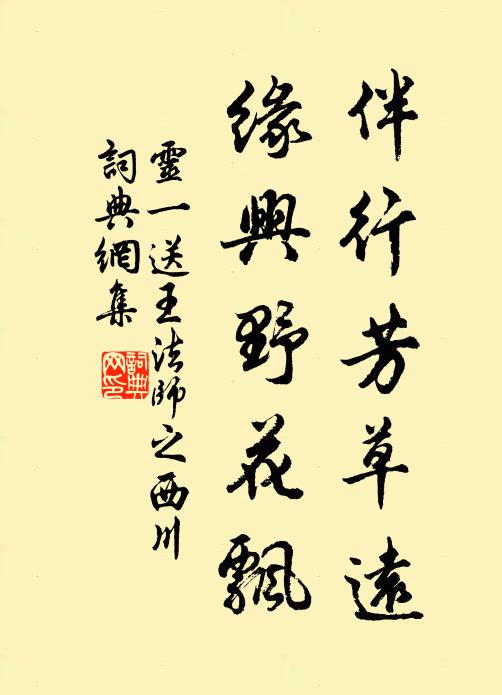 伴行芳草遠
緣興野花飄
靈一送王法師之西川
詞典網集
詞典网印